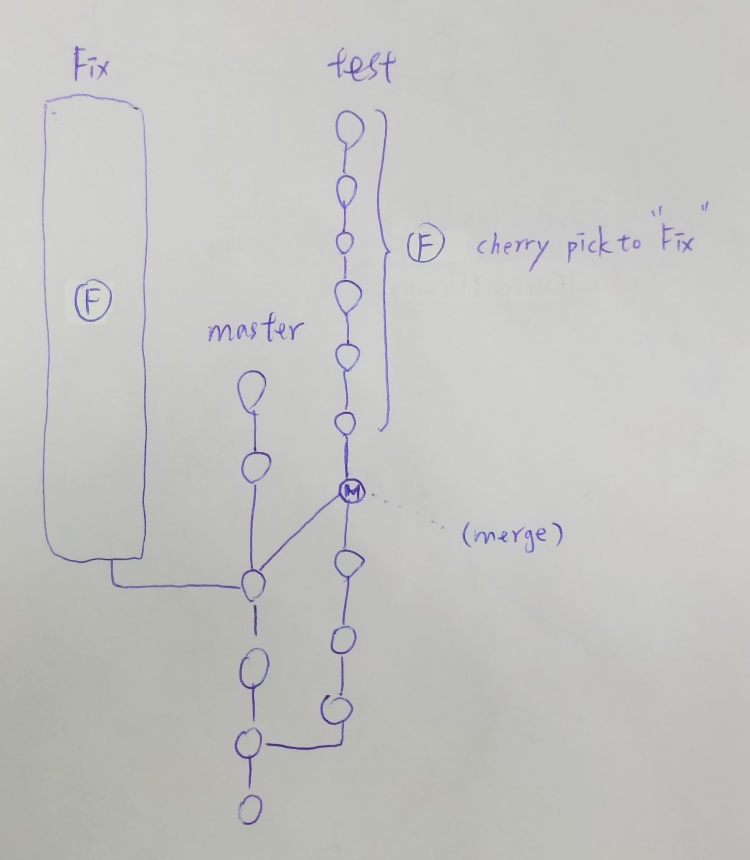 Fix
test
F cherry pick to "Fix"
F
master
M
(merge)